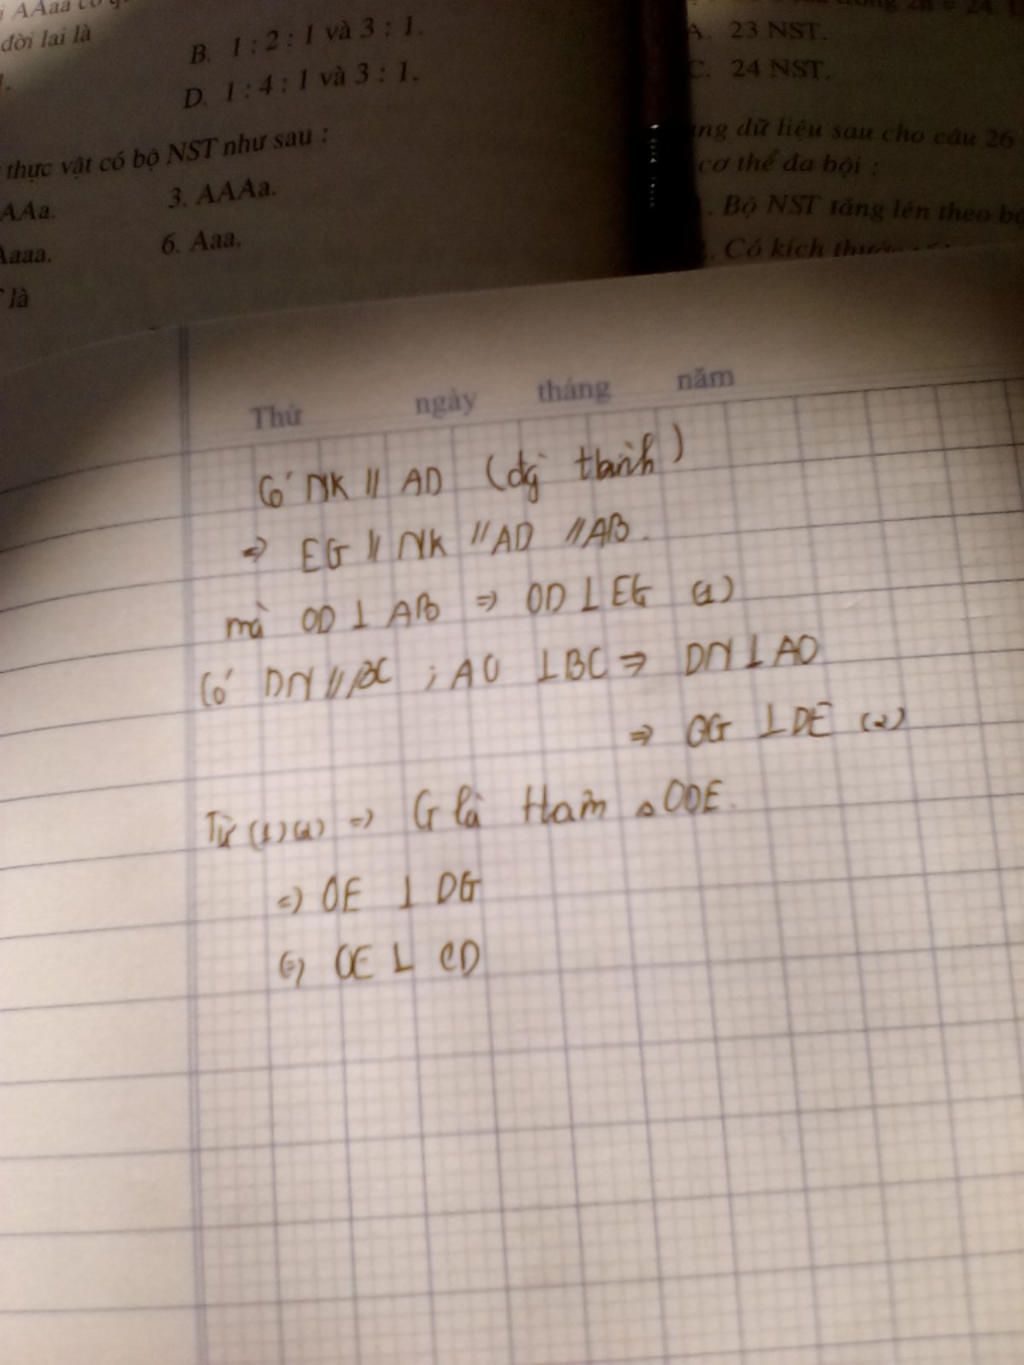 AAaa có
đời lai là
B. 1 : 2 : 1 và 3 : 1.
D. 1 : 4 : 1 và 3 : 1.
thực vật có bộ NST như sau :
AAa.
3. AAAa.
Aaaa.
6. Aaa.
là
2n = 24
A. 23 NST.
C. 24 NST.
dữ liệu sau cho câu 26
cơ thể đa bội :
. Bộ NST tăng lên theo
. Có kích thước
Thứ ngày tháng năm
Có NK // AD (đg thành)
=> EG // NK // AD // AB.
mà OD ⊥ AB => OD ⊥ EG (1)
Có DN // BC ; AO ⊥ BC => DN ⊥ AO
=> OG ⊥ DE (2)
Từ (1) (2) => G là ΔODE.
=> OE ⊥ DG
=> OE ⊥ CD